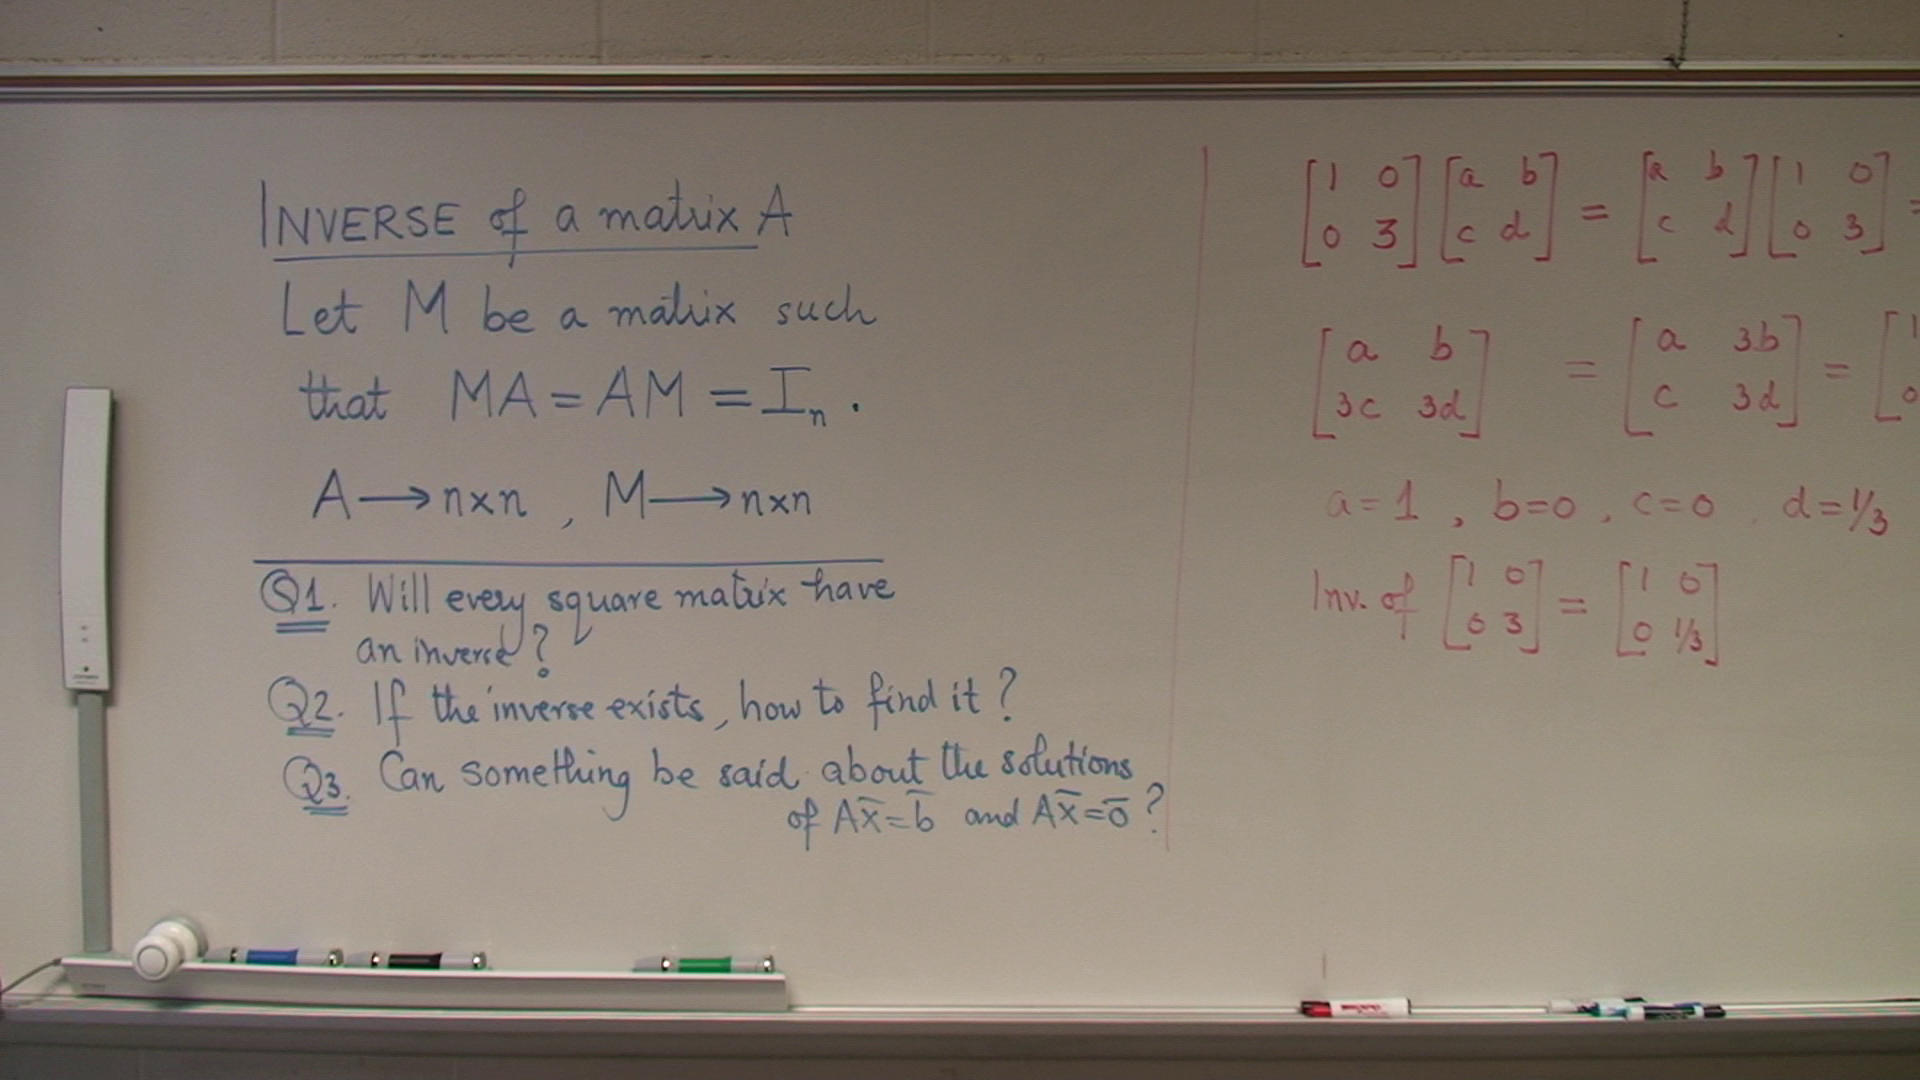 INVERSE of a matrix A
Let M be a matrix such
that MA = AM = Iₙ .
A → n×n , M → n×n
Q1. Will every square matrix have
an inverse ?
Q2. If the inverse exists, how to find it ?
Q3. Can something be said about the solutions
of Ax̄ = b̄ and Ax̄ = ō ?
[1 0] [a b] = [a b] [1 0] =
[0 3] [c d] [c d] [0 3]
[a b] = [a 3b] = [1
[3c 3d] [c 3d] [0
a=1 , b=0 , c=0 , d=1/3
Inv. of [1 0] = [1 0]
[0 3] [0 1/3]